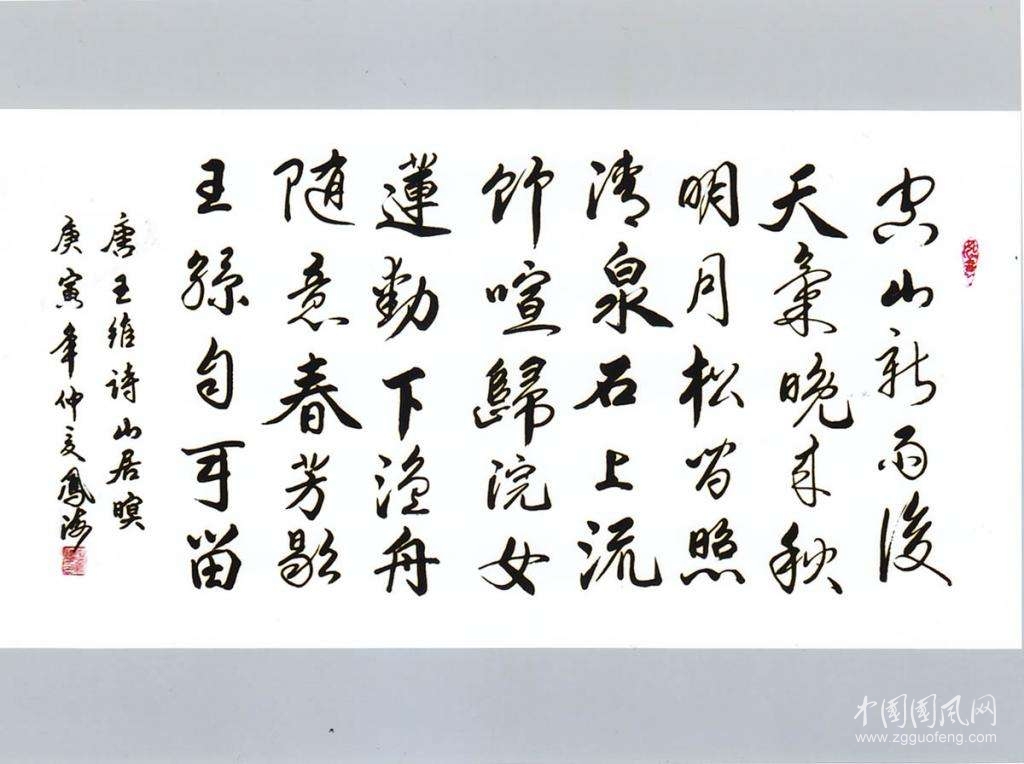 空山新雨後
天氣晚来秋
明月松間照
清泉石上流
竹喧歸浣女
蓮動下渔舟
随意春芳歇
王孫自可留
唐王維詩山居暝
庚寅年仲夏鳳海
中国國风网
www.zgguofeng.com